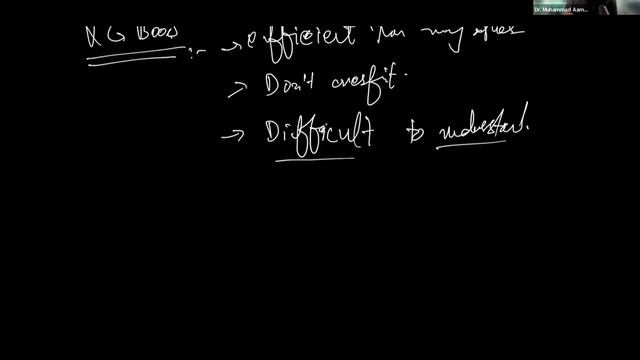 Dr. Muhammad Aam...
XG Boost :- → efficient than many
→ Don't overfit.
→ Difficult to understand.